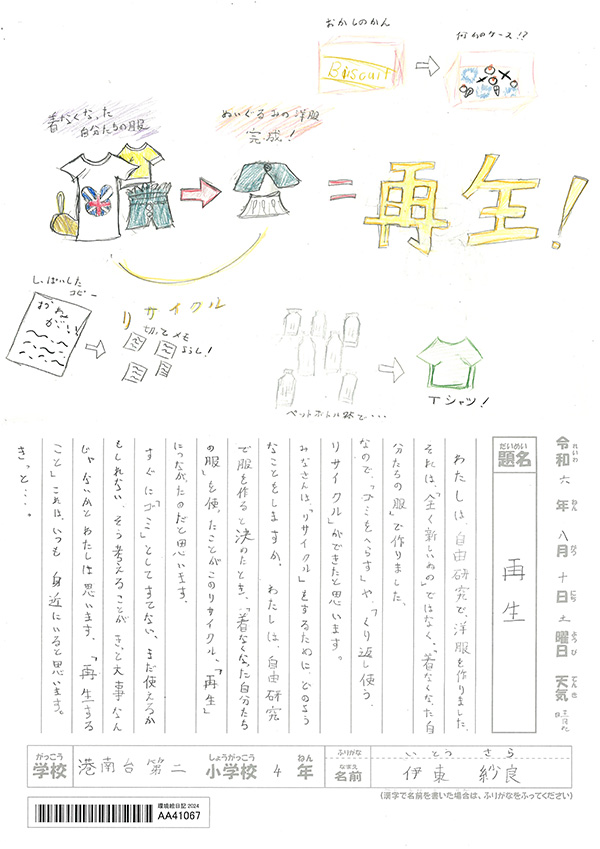 おかしのかん
Biscuit
何かのケース!?
着なくなった
自分たちの服
ぬいぐるみの洋服
完成!
=
再生!
しっぱいした
コピー
おねがい!
リサイクル
切ってメモ
ようし!
ペットボトル25で・・・
Tシャツ!
令和六年八月十日土曜日 天気 晴れ
れいわ ねん がつ にち ようび てんき
だいめい
題名
再生
わたしは、自由研究で、洋服を作りました。
それは、「全く新しいもの」ではなく、「着なくなった自
分たちの服」で作りました。
なので、「ゴミをへらす」や、「くり返し使う、
リサイクル」ができたと思います。
みなさんは、「リサイクル」をするために、どのよう
なことをしますか。わたしは、自由研究
で服を作ると決めたとき、「着なくなった自分たち
の服」を使ったことがこのリサイクル、「再生」
につながったのだと思います。
すぐに「ゴミ」としてすてない、まだ使えるか
もしれない、そう考えることが、きっと大事なん
じゃないかとわたしは思います。「再生する
こと」これは、いつも身近にいると思います。
きっと・・・。
がっこう
学校
港南台第二
しょうがっこう
小学校
4
ねん
年
ふりがな
いとう さら
なまえ
名前
伊東 紗良
(漢字で名前を書いた場合は、ふりがなをふってください)
環境絵日記2024
AA41067